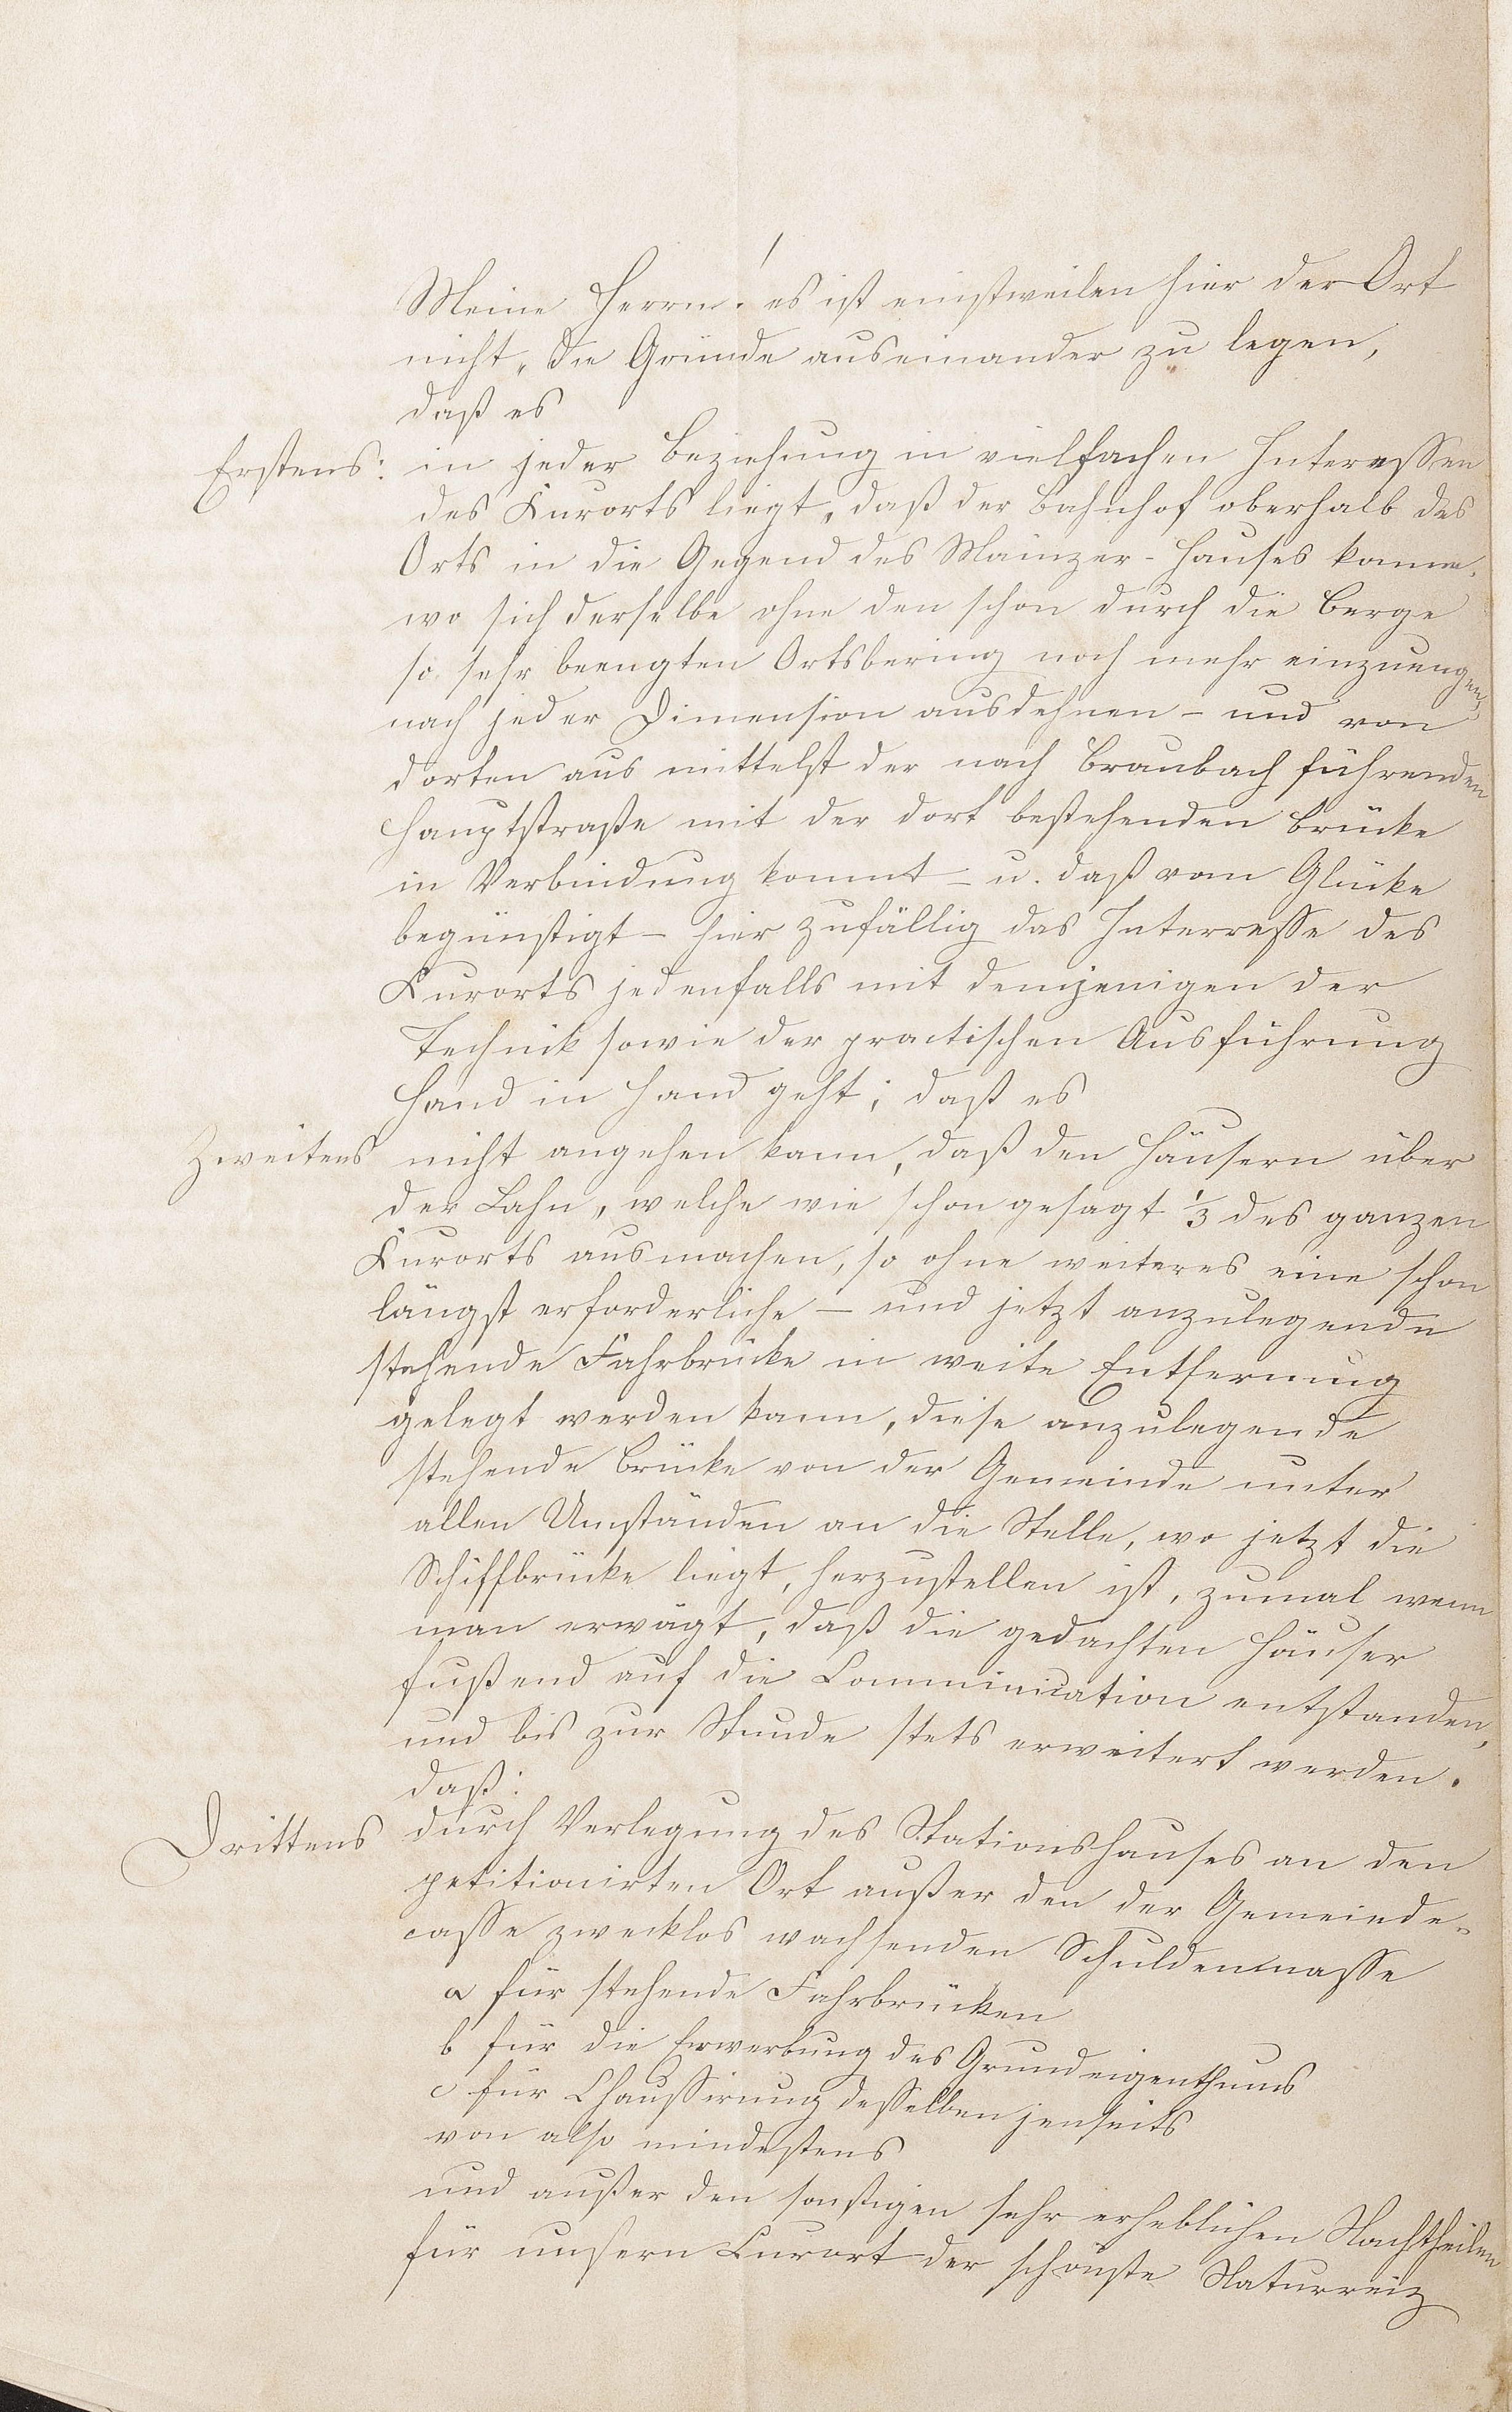 Meine Herrn! es ist einstweilen hier der Ort
nicht, die Gründe auseinander zu legen,
daß es
Erstens: in jeder Beziehung in vielfachen Interessen
des Kurorts liegt, daß der Bahnhof oberhalb des
Orts in die Gegend des Mainzer-Hauses komme,
wo sich derselbe ohne den schon durch die Berge
so sehr beengten Ortsbering noch mehr einzuengen,
nach jeder Dimension ausdehnen - und von
dorten aus mittelst der nach Braubach führenden
Hauptstraße mit der dort bestehenden Brücke
in Verbindung kommt - u. daß vom Glücke
begünstigt - hier zufällig das Interresse des
Kurorts jedenfalls mit demjenigen der
Technik sowie der practischen Ausführung
Hand in Hand geht; daß es
Zweitens nicht angehen kann, daß den Häusern über
der Lahn, welche wie schon gesagt 1/3 des ganzen
Kurorts ausmachen, so ohne weiteres eine schon
längst erforderliche - und jetzt anzulegende
stehende Fahrbrücke in weite Entfernung
gelegt werden kann, diese anzulegende
stehende Brücke von der Gemeinde unter
allen Umständen an die Stelle, wo jetzt die
Schiffbrücke liegt, herzustellen ist, zumal wenn
man erwägt, daß die gedachten Häuser
fußend auf die Communication entstanden,
und bis zur Stunde stets erweitert werden.
daß:
Drittens durch Verlegung des Stationshauses an den
petitionirten Ort außer den der Gemeinde-
casse zwecklos wachsenden Schuldenmasse
a für stehende Fahrbrücken
b für die Erwerbung des Grundeigenthums
c für Chaussirung desselben jenseits
von also mindestens
und außer den sonstigen sehr erheblichen Nachtheilen
für unsern Curort der schönste Naturreiz